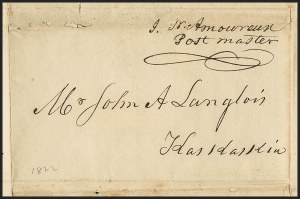 J. N. Amoureux
Post master
Mr John A Langlois
Kaskaskia
1822